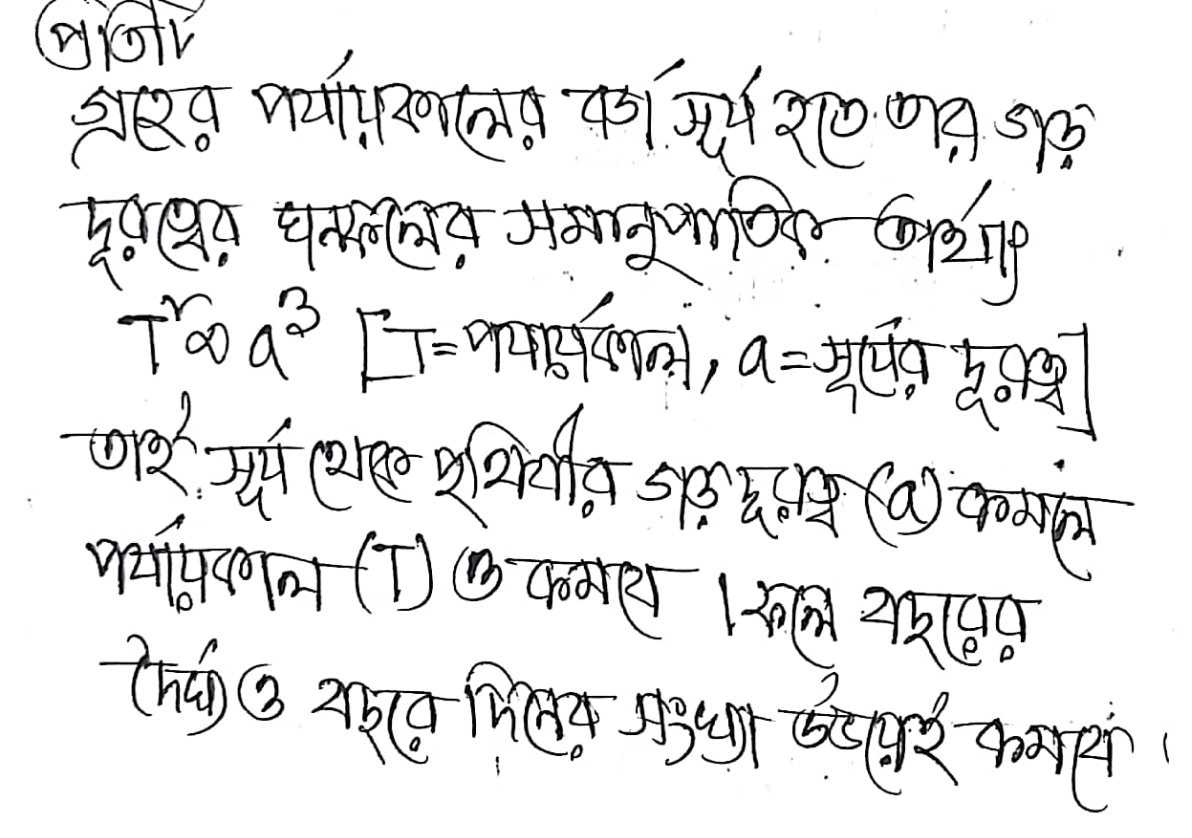 প্রতিটি
গ্রহের পর্যায়কালের বর্গ সূর্য হতে তার গড়
দূরত্বের ঘনফলের সমানুপাতিক অর্থাৎ
T² ∝ a³ [T=পর্যায়কাল, a=সূর্যের দূরত্ব]
তাই সূর্য থেকে পৃথিবীর গড় দূরত্ব (a) কমলে
পর্যায়কাল (T) ও কমবে । ফলে বছরের
দৈর্ঘ্য ও বছরে দিনের সংখ্যা উভয়েই কমবে ।